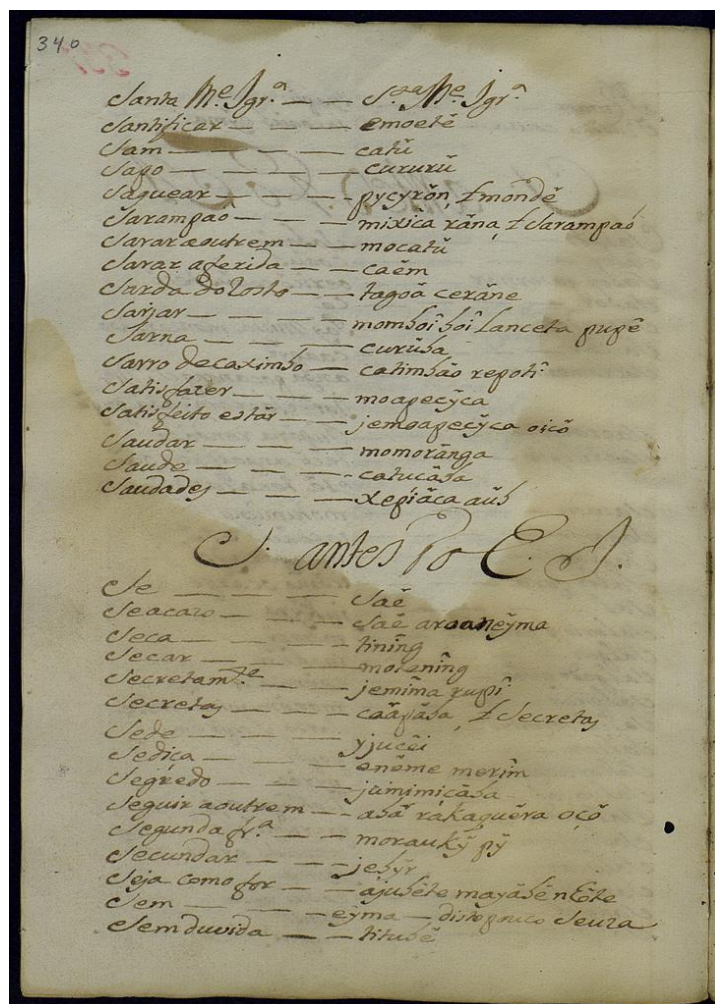 340
Santa M.e Igr.a — — S.ta M.e Igr.a
Santificar — — — emoetẽ
Sam — — — — catũ
Sapo — — — — cururũ
Saquear — — — — pycyrõn, ł mondẽ
Sarampaõ — — — mixica rãna, ł Sarampaõ
Sarar a outrem — — mocatũ
Sarar a ferida — — caẽm
Sarda do rosto — — tagoã cerãne
Sarjar — — — — momboî boî lanceta pupẽ
Sarna — — — — curũba
Sarro de caximbo — catimbão repotî
Satisfazer — — — moapecỹca
Satisfeito estãr — — jemoapecỹca oicõ
Saudar — — — momorãnga
Saude — — — — catucãba
Saudades — — — xepiãca aũb
S. antes do E. I.
Se — — — — Saẽ
Se acazo — — — Saẽ aroanẽyma
Seca — — — — tinĩng
Secar — — — — motenĩng
Secretam.te — — — jemĩma rupî
Secretas — — — caãpãba, ł Secretas
Sede — — — — yjucẽi
Sediça — — — — enẽme merĩm
Segredo — — — jumimicãba
Seguir a outrem — — abã rakaquẽra oçõ
Segunda fr.a — — moraukỹ pỹ
Secundar — — — jebỹr
Seja como for — — ajubẽte mayãbẽ nEte
Sem — — — — eỹma — disto pouco se uza
Sem duvida — — — titubẽ